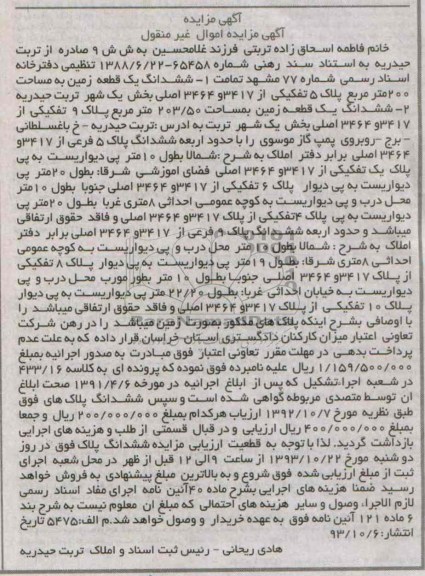 آگهی مزایده
آگهی مزایده اموال غیر منقول
خانم فاطمه اسحاق زاده تربتی فرزند غلامحسین به ش ش ۹ صادره از تربت
حیدریه به استناد سند رهنی شماره ۶۵۴۵۸-۱۳۸۸/۶/۲۲ تنظیمی دفترخانه
اسناد رسمی شماره ۷۷ مشهد تمامت ۱- ششدانگ یک قطعه زمین به مساحت
۲۰۰متر مربع پلاک ۵ تفکیکی از ۳۴۱۷و ۳۴۶۴ اصلی بخش یک شهر تربت حیدریه
۲- ششدانگ یک قطعه زمین بمساحت ۲۰۳/۵۰ متر مربع پلاک ۹ تفکیکی از
۳۴۱۷و ۳۴۶۴ اصلی بخش یک شهر تربت به ادرس :تربت حیدریه - خ باغسلطانی
- برج -روبروی پمپ گاز موسوی را با حدود اربعه ششدانگ پلاک ۵ فرعی از ۳۴۱۷و
۳۴۶۴ اصلی برابر دفتر املاک به شرح :شمالا بطول ۱۰متر پی دیواریست به پی
پلاک یک تفکیکی از ۳۴۱۷و ۳۴۶۴ اصلی فضای اموزشی شرقا: بطول ۲۰متر پی
دیواریست به پی دیوار پلاک ۶ تفکیکی از ۳۴۱۷و ۳۴۶۴ اصلی جنوبا بطول ۱۰متر
محل درب و پی دیواریست به کوچه عمومی احداثی ۸متری غربا بطول ۲۰متر پی
دیواریست به پی پلاک ۴تفکیکی از پلاک ۳۴۱۷و ۳۴۶۴ اصلی و فاقد حقوق ارتفاقی
میباشد و حدود اربعه ششدانگ پلاک ۹ فرعی از ۳۴۱۷و ۳۴۶۴ اصلی برابر دفتر
املاک به شرح : شمالا بطول ۱۰ متر محل درب و پی دیواریست به کوچه عمومی
احداثی ۸متری شرقا: بطول ۱۹متر پی دیواریست به پی دیوار پلاک ۸ تفکیکی
از پلاک ۳۴۱۷و ۳۴۶۴ اصلی جنوبا بطول ۱۰ متر بطور مورب محل درب و پی
دیواریست به خیابان احداثی غربا: بطول ۲۲/۲۰ متر پی دیواریست به پی دیوار
پلاک ۱۰ تفکیکی از پلاک ۳۴۱۷و ۳۴۶۴ اصلی و فاقد حقوق ارتفاقی میباشد را
با اوصافی بشرح اینکه پلاک های مذکور بصورت زمین میباشد را در رهن شرکت
تعاونی اعتبار میزان کارکنان دادگستری استان خراسان قرار داده که به علت عدم
پرداخت بدهی در مهلت مقرر تعاونی اعتبار فوق مبادرت به صدور اجرائیه بمبلغ
۱/۱۵۹/۵۰۰/۰۰۰ ریال علیه نامبرده فوق نموده که پرونده ای به کلاسه ۴۳۳/۱۶
در شعبه اجرا،تشکیل که پس از ابلاغ اجرائیه در مورخه ۱۳۹۱/۴/۶ صحت ابلاغ
ان توسط متصدی مربوطه گواهی شده است و سپس ششدانگ پلاک های فوق
طبق نظریه مورخ ۱۳۹۲/۱۰/۷ ارزیاب هرکدام بمبلغ ۲۰۰/۰۰۰/۰۰۰ ریال و جمعا
بمبلغ ۴۰۰/۰۰۰/۰۰۰ ریال ارزیابی و در قبال قسمتی از طلب و هزینه های اجرایی
بازداشت گردید. لذا با توجه به قطعیت ارزیابی مزایده ششدانگ پلاک فوق در روز
دو شنبه مورخ ۱۳۹۳/۱۰/۲۲ از ساعت ۹الی ۱۲ قبل از ظهر در محل شعبه اجرای
ثبت از مبلغ ارزیابی شده فوق شروع و به بالاترین مبلغ پیشنهادی به فروش خواهد
رسید ضمنا هزینه های اجرایی بشرح ماده ۴۰آئین نامه اجرای مفاد اسناد رسمی
لازم الاجرا، وصول و سایر هزینه های احتمالی که مبلغ ان معلوم نیست به شرح بند
۶ ماده ۱۲۱ آئین نامه فوق به عهده خریدار و وصول خواهد شد.م الف:۵۴۷۵ تاریخ
انتشار:۹۳/۱۰/۶
هادی ریحانی - رئیس ثبت اسناد و املاک تربت حیدریه